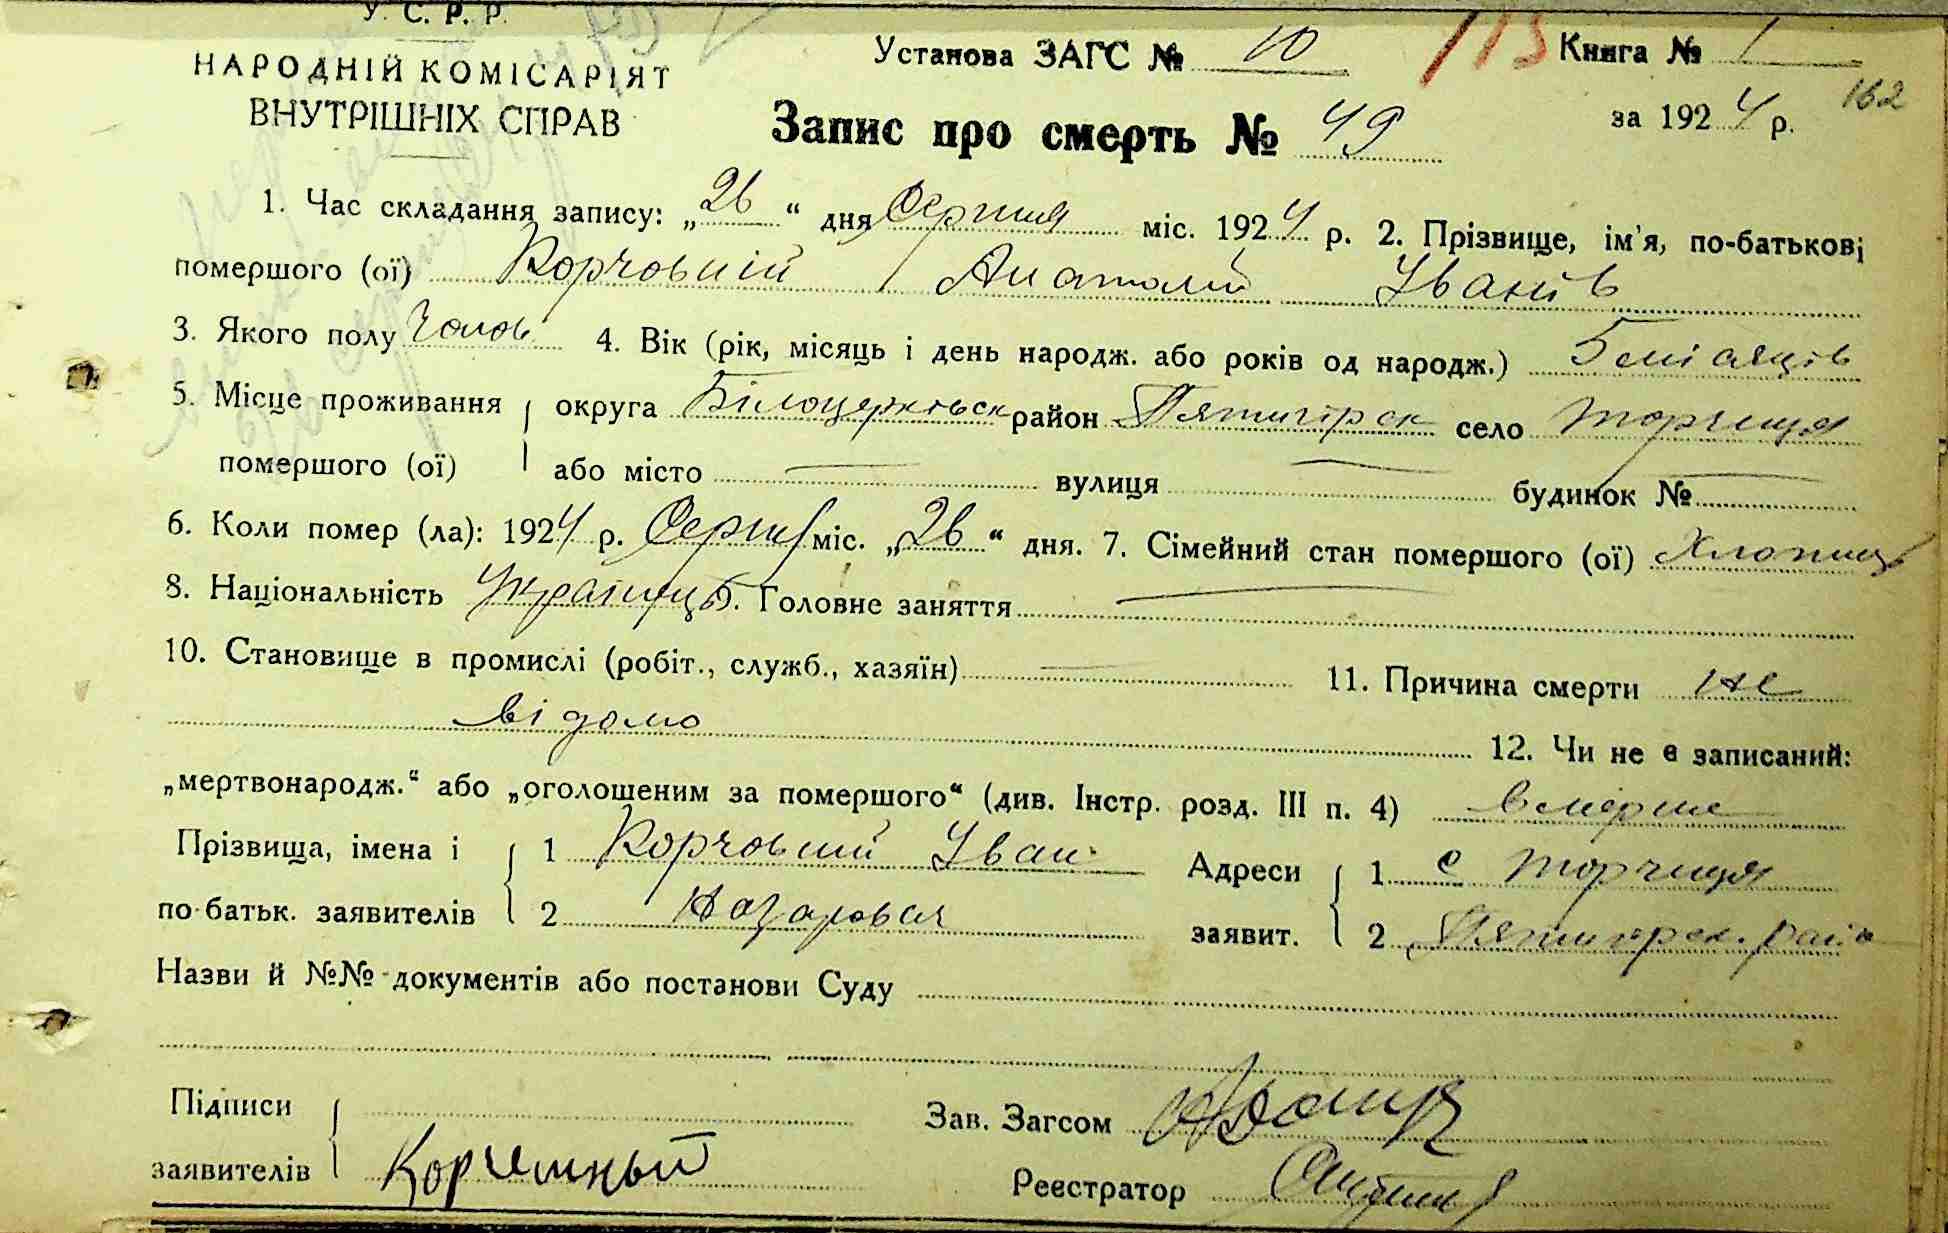 У. С. Р. Р.
НАРОДНІЙ КОМІСАРІЯТ
ВНУТРІШНІХ СПРАВ
Установа ЗАГС № 10
113
Книга № 1
162
Запис про смерть № 49
за 1924 р.
1. Час складання запису: „26“ дня Серпня міс. 1924 р. 2. Прізвище, ім'я, по-батькові
помершого (ої) Корчовний Анатолій Іванів
3. Якого полу Чолов 4. Вік (рік, місяць і день народж. або років од народж.) 5 місяців
5. Місце проживання округа Білоцерковськ район Пятигірск село Торчиця
помершого (ої) або місто — вулиця — будинок № —
6. Коли помер (ла): 1924 р. Серпня міс. „26“ дня. 7. Сімейний стан помершого (ої) Хлопець
8. Національність Українець 9. Головне заняття —
10. Становище в промислі (робіт., служб., хазяїн) — 11. Причина смерти не
відомо
12. Чи не є записаний:
„мертвонародж.“ або „оголошеним за помершого“ (див. Інстр. розд. III п. 4) вмерше
Прізвища, імена і 1 Корчовний Іван Адреси 1 с Торчиця
по-батьк. заявителів 2 Назарович заявит. 2 Пятигорск. район
Назви й №№ документів або постанови Суду
Підписи Зав. Загсом
заявителів Корчемный Реєстратор